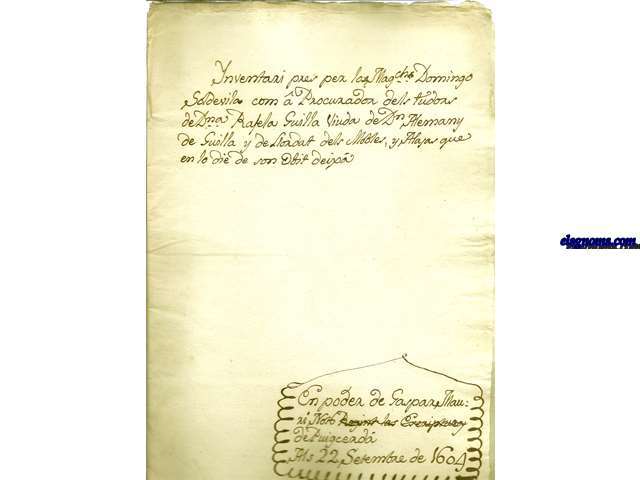 Ynventari pres per lo Mag.ch Domingo
Soldevila com â Procurador dels tudors
de Dna Rafela Guilla Viuda de Dn Alemany
de Guilla y de Lordat dels Mobles, y Alajas que
en lo die de son Obit deixá
elsgnoms.com
En poder de Gaspar Mau:
ri Noto Regint las Escripturas
de Puigcerdá
Als 22 Setembre de 1604